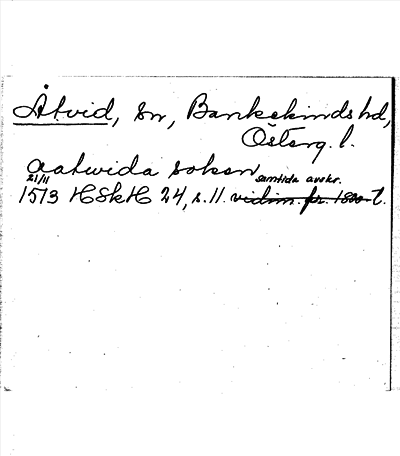 Åtvid, sn, Bankekinds hd,
Österg. l.
aatwida soken
samtida avskr.
21/11
1513 HSkH 24, s. 11. vidim. fr. 1800-t.